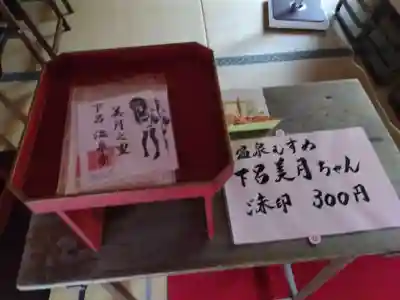 美月之里
下呂温泉
温泉むすめ
下呂美月ちゃん
湯印 300円